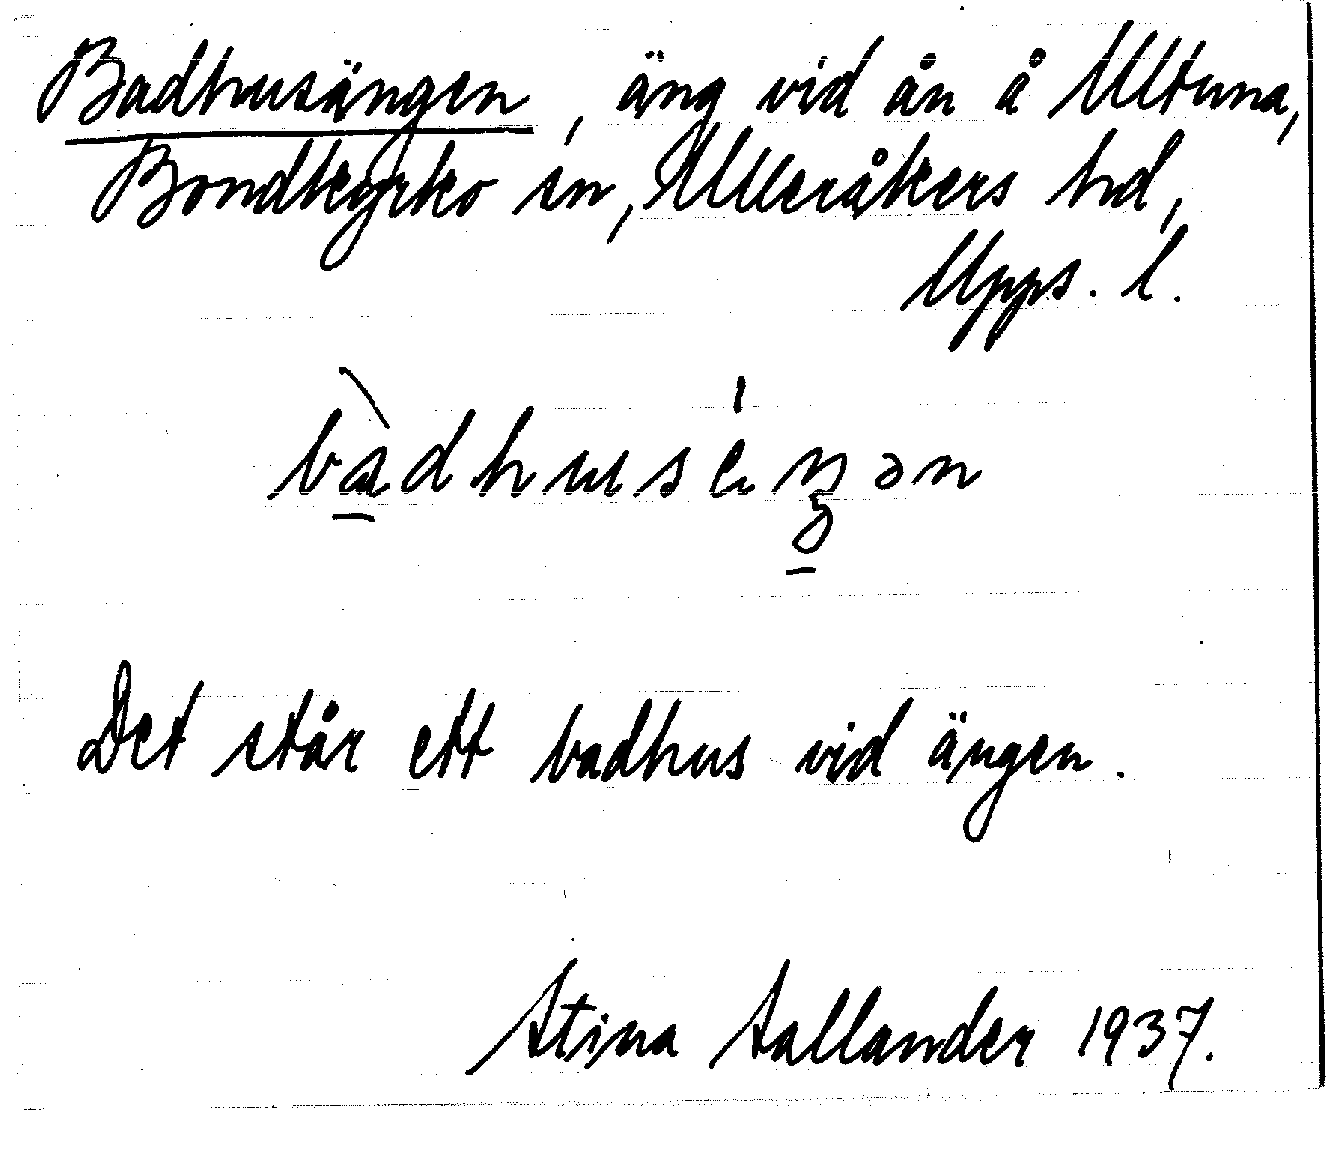 Badhusängen, äng vid ån å Ultuna,
Bondkyrko sn, Ulleråkers hd,
Upps. l.
bàdhuséŋən
Det står ett badhus vid ängen.
Stina Sallander 1937.